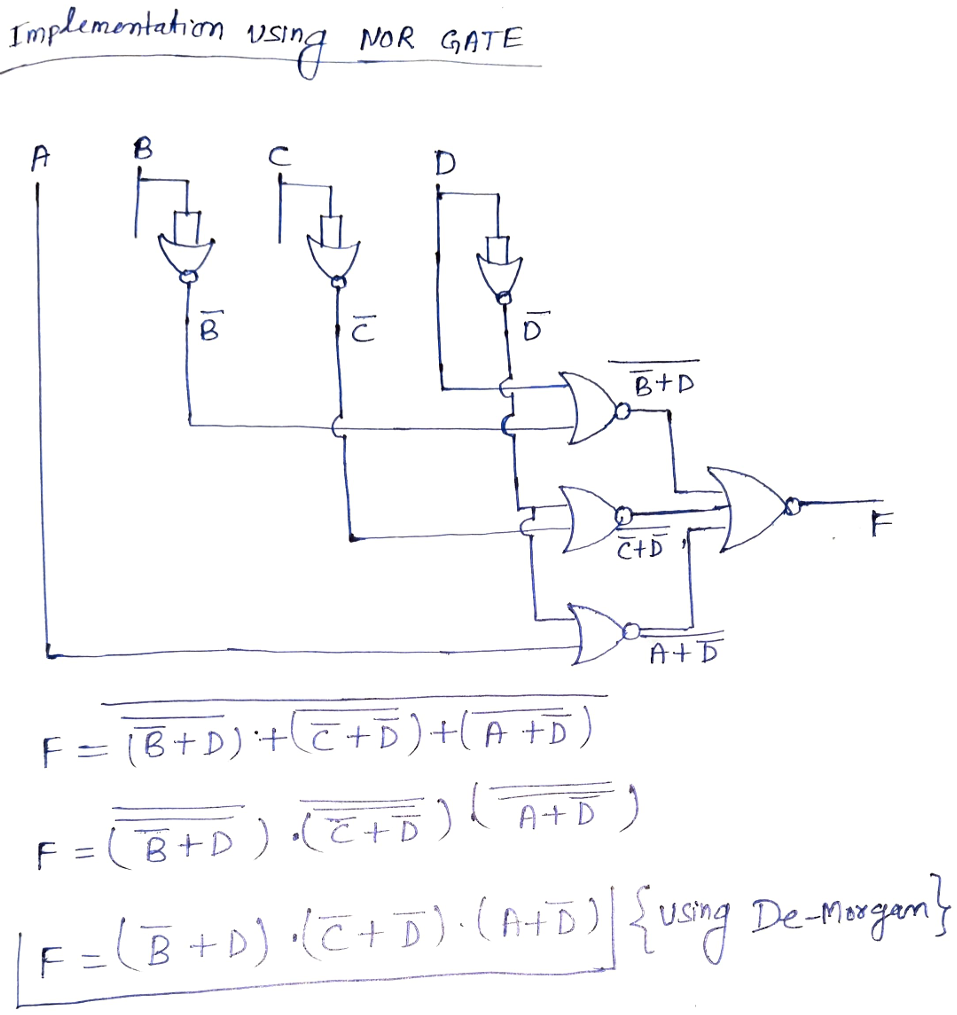 Implementation using NOR GATE
A B C D
B̅ C̅ D̅
\overline{B̅+D}
F
\overline{C̅+D̅}
\overline{A+D̅}
F = \overline{\overline{(B̅+D)}+\overline{(C̅+D̅)}+\overline{(A+D̅)}}
F = (\overline{\overline{B̅+D}}).(\overline{\overline{C̅+D̅}})(\overline{\overline{A+D̅}})
F = (B̅+D).(C̅+D̅).(A+D̅) {using De-Morgan}